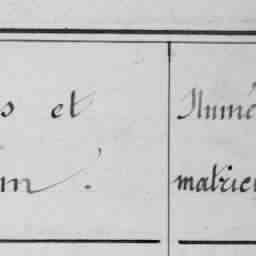 s et
m.
Numé
matricu